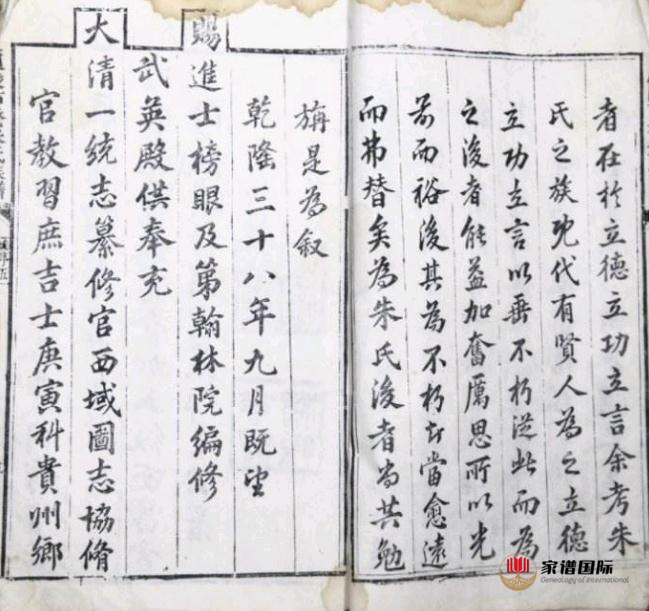 者在於立德立功立言余考朱
氏之族先代有賢人為之立德
立功立言以垂不朽從此而為
之後者能益加奮厲思所以光
前而裕後其為不朽當愈遠
而弗替矣為朱氏後者尚共勉
旃是為叙
乾隆三十八年九月既望
賜進士榜眼及第翰林院編修
武英殿供奉充
大清一統志纂修官西域圖志協脩
官教習庶吉士庚寅科貴州鄉
家谱国际
Genealogy of International